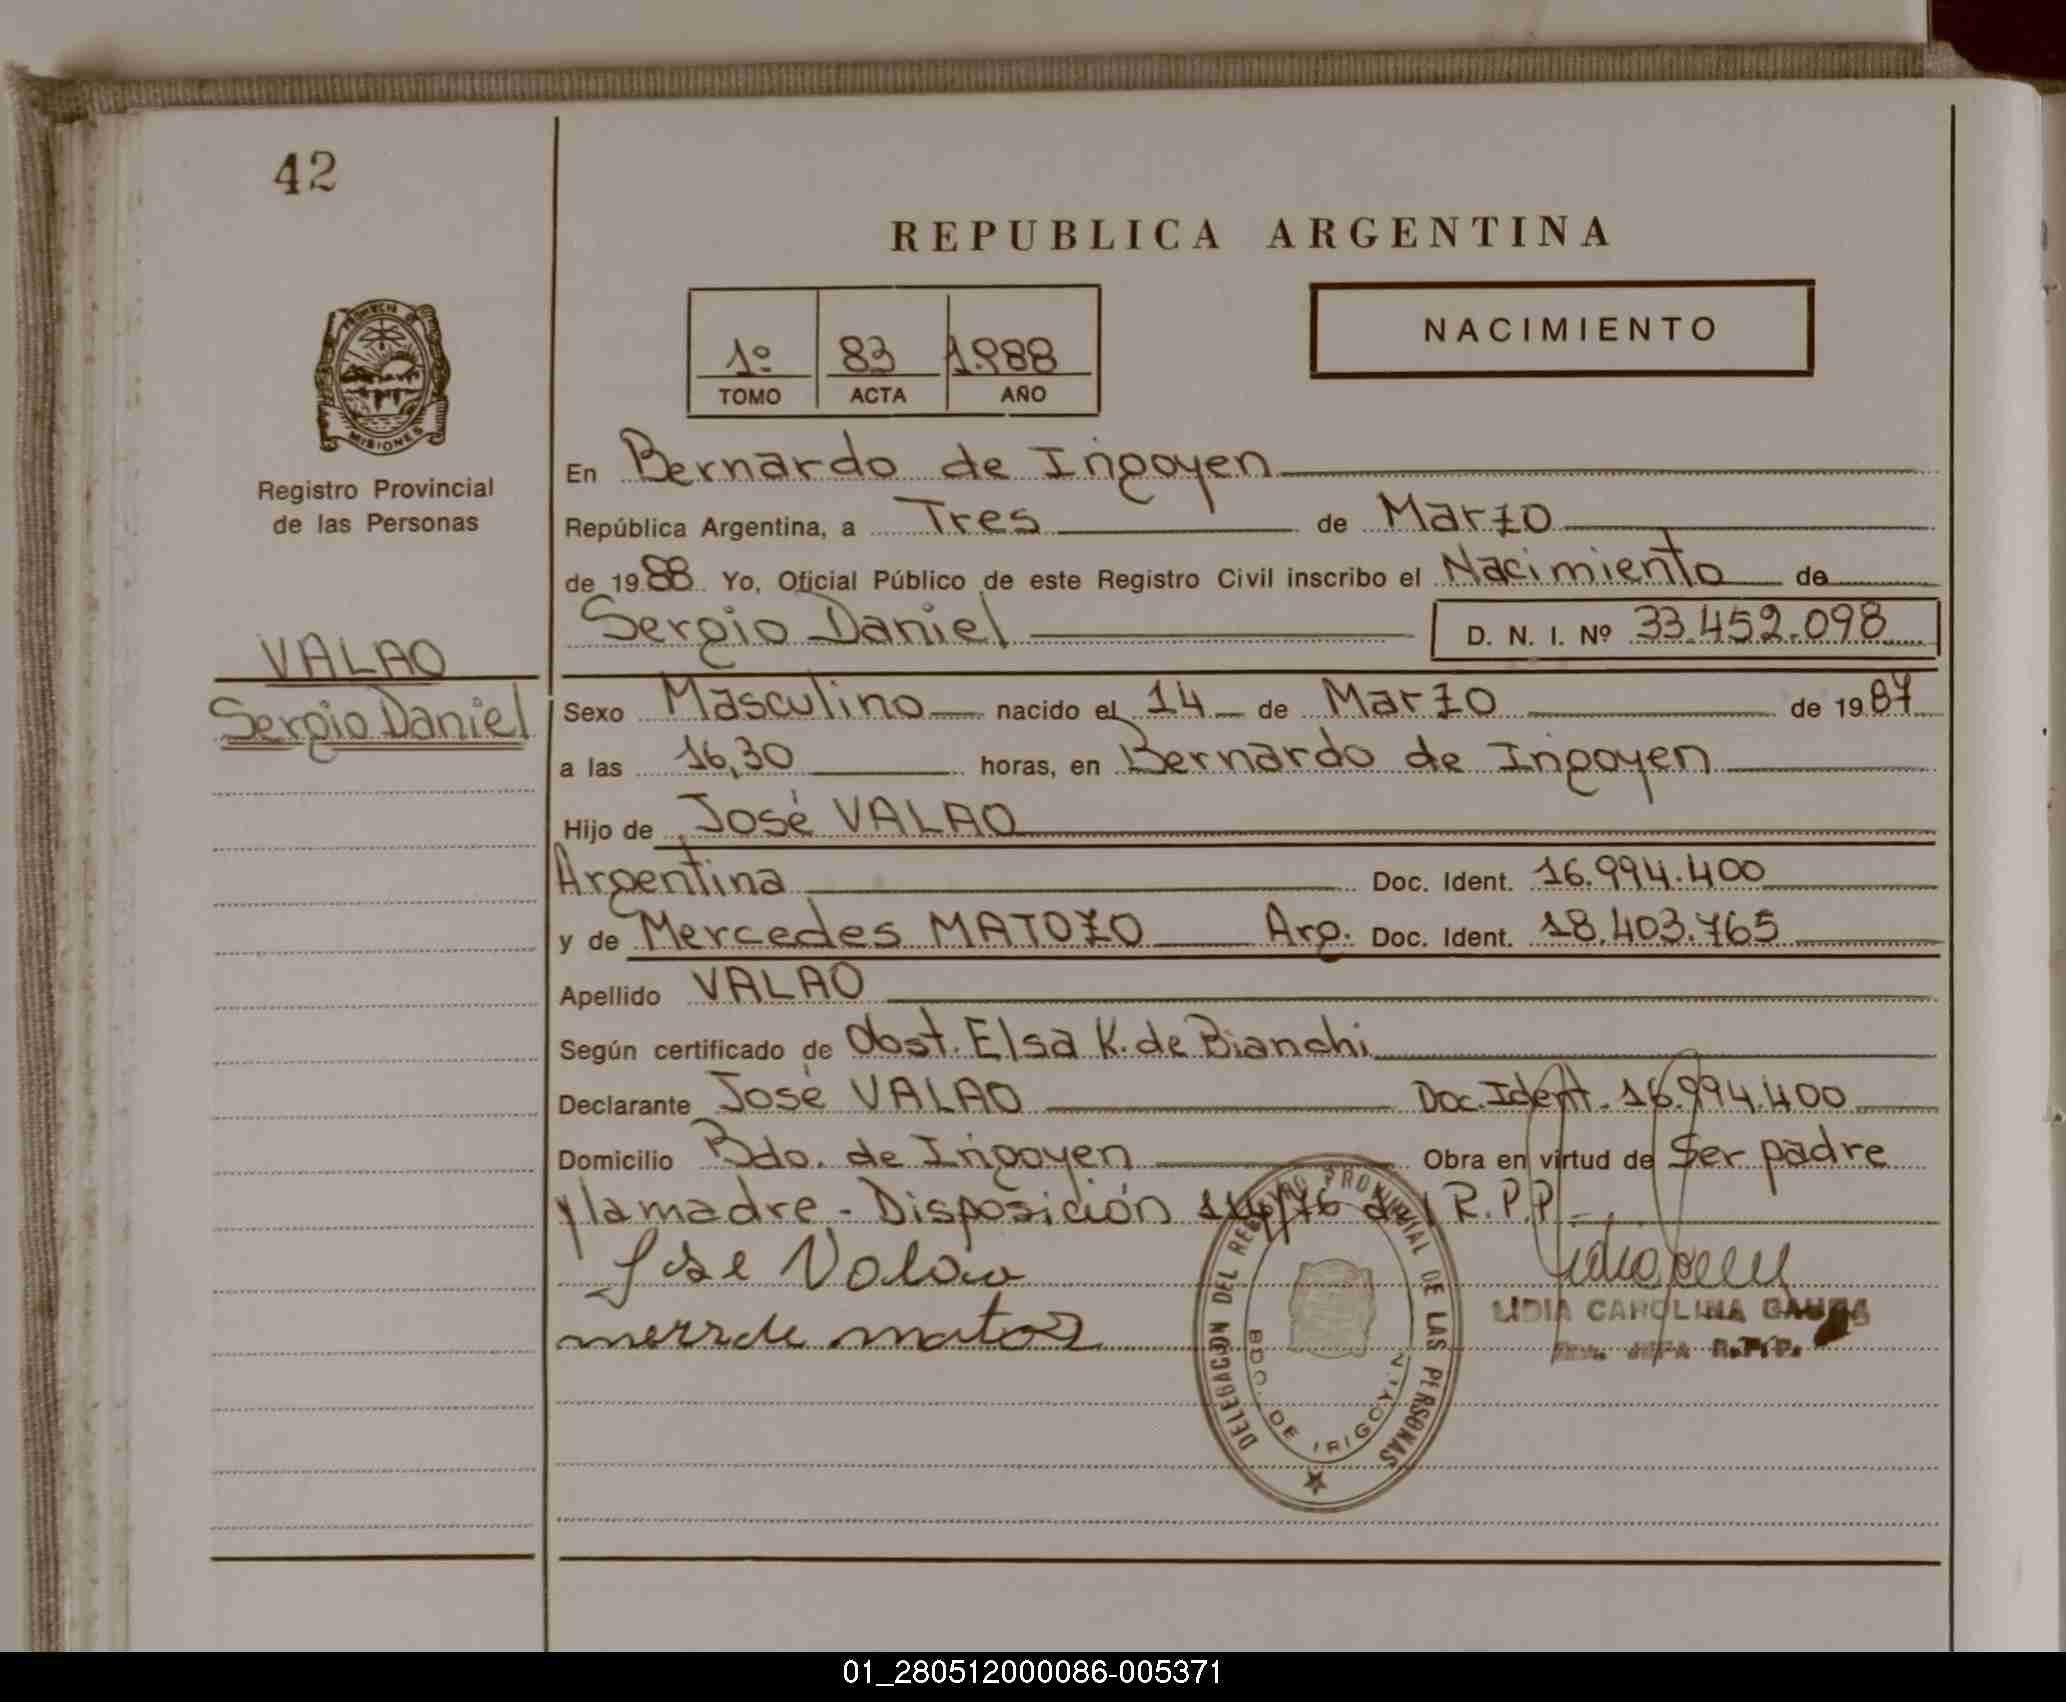 42
REPUBLICA ARGENTINA
1º 83 1.988
TOMO ACTA AÑO
NACIMIENTO
PROVINCIA DE
MISIONES
Registro Provincial
de las Personas
En Bernardo de Irigoyen
República Argentina, a Tres de Marzo
de 1988 Yo, Oficial Público de este Registro Civil inscribo el Nacimiento de
Sergio Daniel D. N. I. Nº 33.452.098
VALAO
Sergio Daniel
Sexo Masculino nacido el 14 de Marzo de 1987
a las 16,30 horas, en Bernardo de Irigoyen
Hijo de José VALAO
Argentina Doc. Ident. 16.994.400
y de Mercedes MATOZO Arg. Doc. Ident. 18.403.765
Apellido VALAO
Según certificado de Obst. Elsa K. de Bianchi
Declarante José VALAO Doc. Ident. 16.994.400
Domicilio Bdo. de Irigoyen Obra en virtud de Ser padre
y la madre - Disposición /76 del R.P.P.
Jose Valao
merzde matoz
DELEGACION DEL REGISTRO PROVINCIAL DE LAS PERSONAS
BDO. DE IRIGOYEN
LIDIA CAROLINA
JEFA R.P.P.
01_280512000086-005371